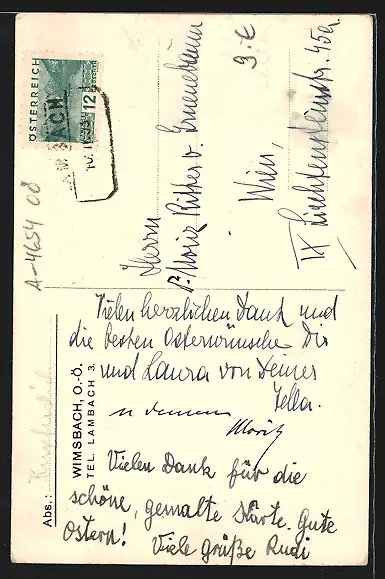 ÖSTERREICH
12
GROSCHEN
A-4654 08
9.-€
Herrn
Dr Moriz Ritter v. Grunebaum
Wien,
IX Liechtensteinstr. 45a
Vielen herzlichen Dank und
die besten Osterwünsche Dir
und Laura von Deiner
Tella.
u deinem
Moritz
Vielen Dank für die
schöne, gemalte Karte. Gute
Ostern! Viele grüße Rudi
WIMSBACH, O.-Ö.
TEL. LAMBACH 3.
Abs.: